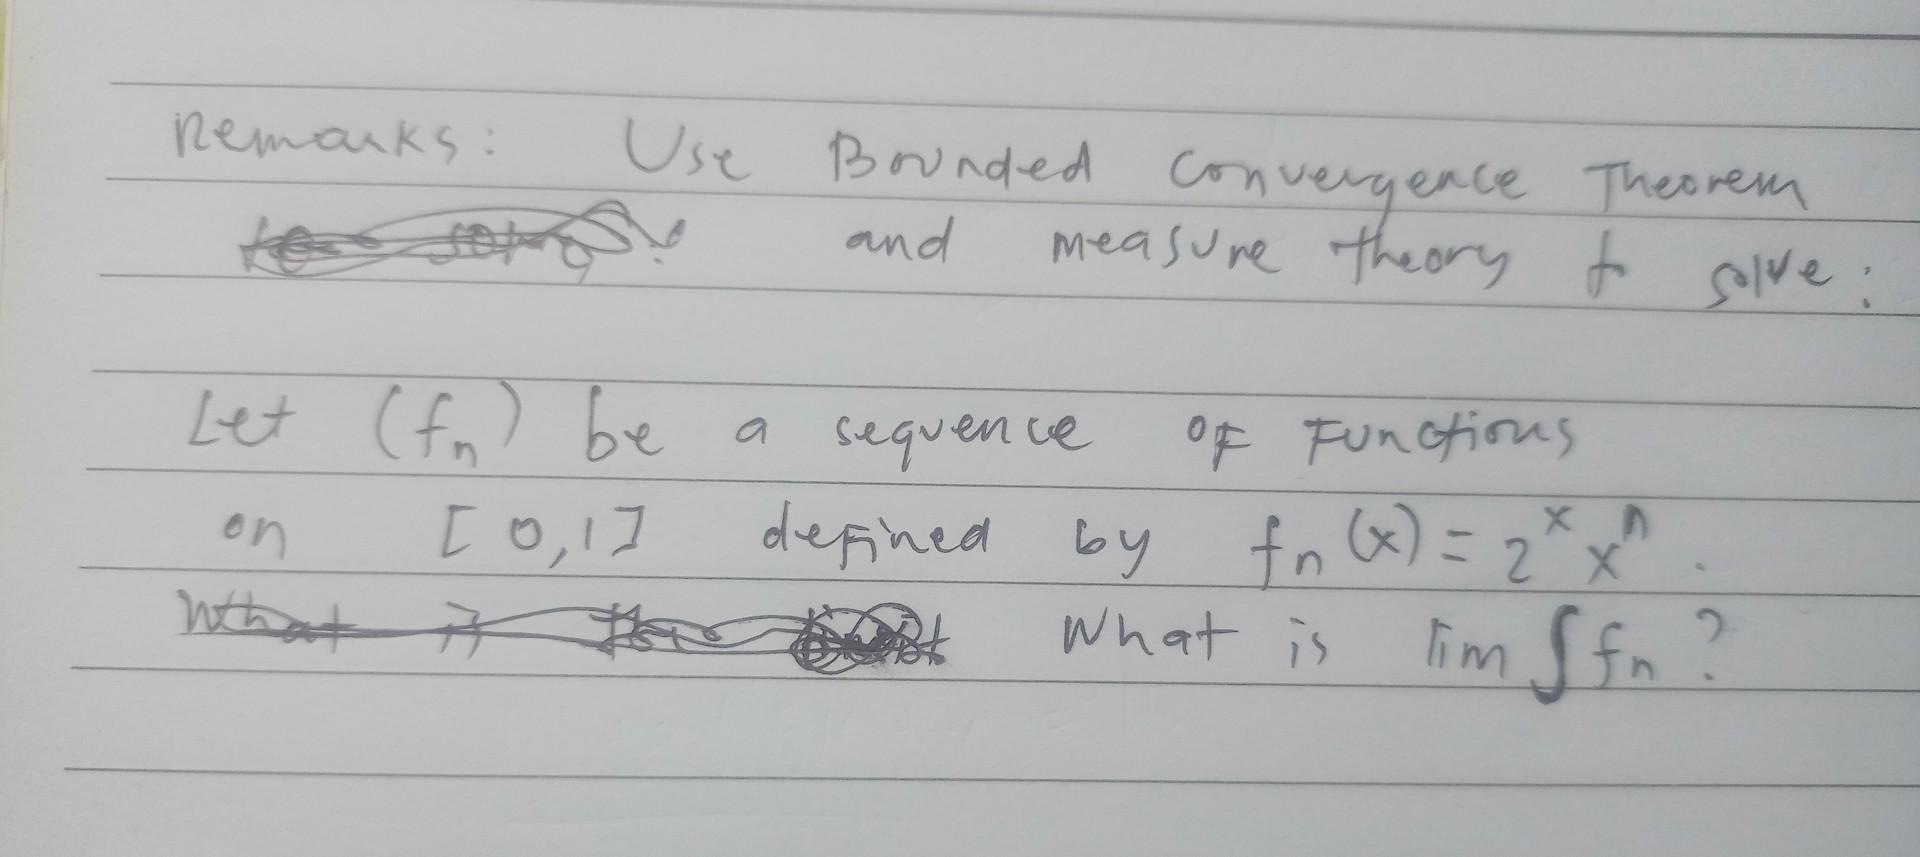 Remarks: Use Bounded Convergence Theorem
and measure theory to solve:
Let (fₙ) be a sequence of Functions
on [0,1] defined by fₙ(x) = 2ˣxⁿ.
What is lim ∫fₙ?